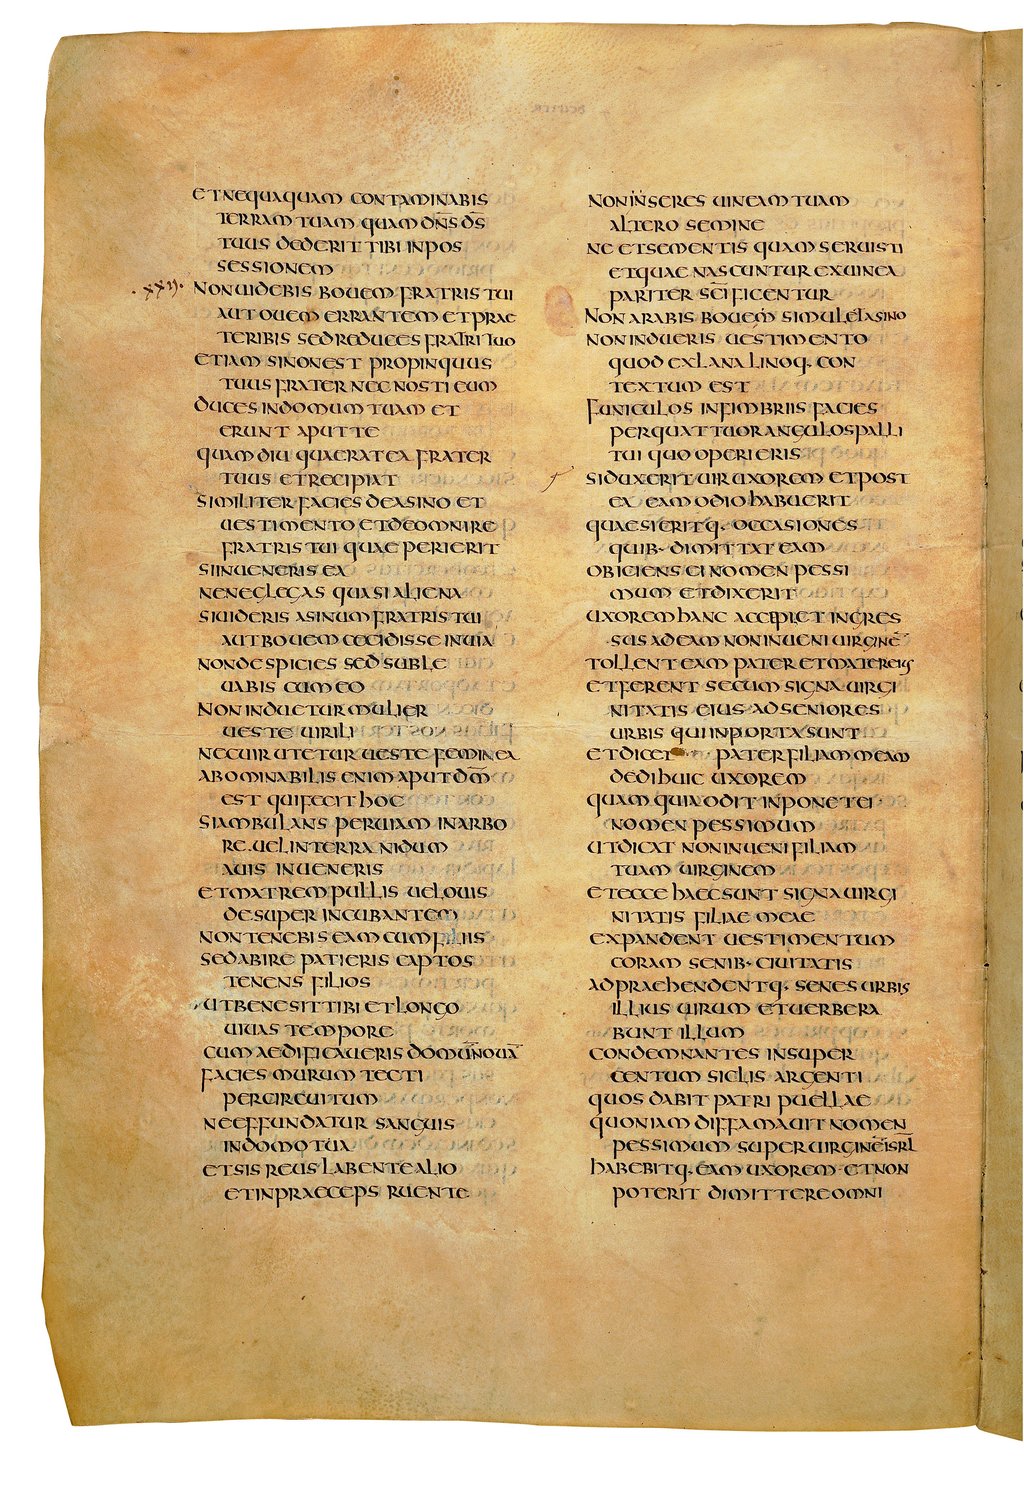 ET NEQUAQUAM CONTAMINABIS
TERRAM TUAM QUAM DN̅S D̅S
TUUS DEDERIT TIBI IN POS
SESSIONEM
·XXII· NON UIDEBIS BOUEM FRATRIS TUI
AUT OUEM ERRANTEM ET PRAE
TERIBIS SED REDUCES FRATRI TUO
ETIAM SI NON EST PROPINQUUS
TUUS FRATER NEC NOSTI EUM
DUCES IN DOMUM TUAM ET
ERUNT APUT TE
QUAMDIU QUAERAT EA FRATER
TUUS ET RECIPIAT
SIMILITER FACIES DE ASINO ET
UESTIMENTO ET DE OMNI RE
FRATRIS TUI QUAE PERIERIT
SI INUENERIS EA
NE NEGLEGAS QUASI ALIENA
SI UIDERIS ASINUM FRATRIS TUI
AUT BOUEM CECIDISSE IN UIA
NON DESPICIES SED SUBLE
UABIS CUM EO
NON INDUETUR MULIER
UESTE UIRILI
NEC UIR UTETUR UESTE FEMINEA
ABOMINABILIS ENIM APUT DM̅
EST QUI FECIT HOC
SI AMBULANS PER UIAM IN ARBO
RE UEL IN TERRA NIDUM
AUIS INUENERIS
ET MATREM PULLIS UEL OUIS
DESUPER INCUBANTEM
NON TENEBIS EAM CUM FILIIS
SED ABIRE PATIERIS CAPTOS
TENENS FILIOS
UT BENE SIT TIBI ET LONGO
UIUAS TEMPORE
CUM AEDIFICAUERIS DOMUM̅ NOUA̅
FACIES MURUM TECTI
PER CIRCUITUM
NE EFFUNDATUR SANGUIS
IN DOMO TUA
ET SIS REUS LABENTE ALIO
ET IN PRAECEPS RUENTE
NON INSERES UINEAM TUAM
ALTERO SEMINE
NE ET SEMENTIS QUAM SERUISTI
ET QUAE NASCUNTUR EX UINEA
PARITER SC̅IFICENTUR
NON ARABIS BOUEM SIMUL ET ASINO
NON INDUERIS UESTIMENTO
QUOD EX LANA LINOQ· CON
TEXTUM EST
FUNICULOS IN FIMBRIIS FACIES
PER QUATTUOR ANGULOS PALLI
TUI QUO OPERIERIS
SI DUXERIT UIR UXOREM ET POST
EA EAM ODIO HABUERIT
QUAESIERITQ· OCCASIONES
QUIB· DIMITTAT EAM
OBICIENS EI NOMEN PESSI
MUM ET DIXERIT
UXOREM HANC ACCEPI ET INGRES
SUS AD EAM NON INUENI UIRGINE̅
TOLLENT EAM PATER ET MATER EIUS
ET FERENT SECUM SIGNA UIRGI
NITATIS EIUS AD SENIORES
URBIS QUI IN PORTA SUNT
ET DICET PATER FILIAM MEAM
DEDI HUIC UXOREM
QUAM QUIA ODIT INPONET EI
NOMEN PESSIMUM
UT DICAT NON INUENI FILIAM
TUAM UIRGINEM
ET ECCE HAEC SUNT SIGNA UIRGI
NITATIS FILIAE MEAE
EXPANDENT UESTIMENTUM
CORAM SENIB· CIUITATIS
ADPRAEHENDENTQ· SENES URBIS
ILLIUS UIRUM ET UERBERA
BUNT ILLUM
CONDEMNANTES INSUPER
CENTUM SICLIS ARGENTI
QUOS DABIT PATRI PUELLAE
QUONIAM DIFFAMAUIT NOMEN
PESSIMUM SUPER UIRGINE̅ ISRL̅
HABEBITQ· EAM UXOREM ET NON
POTERIT DIMITTERE OMNI